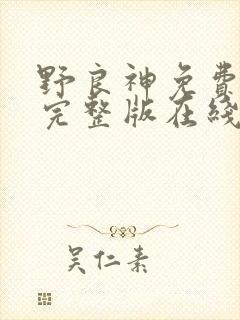 野良神免费
完整版在线
吴仁素